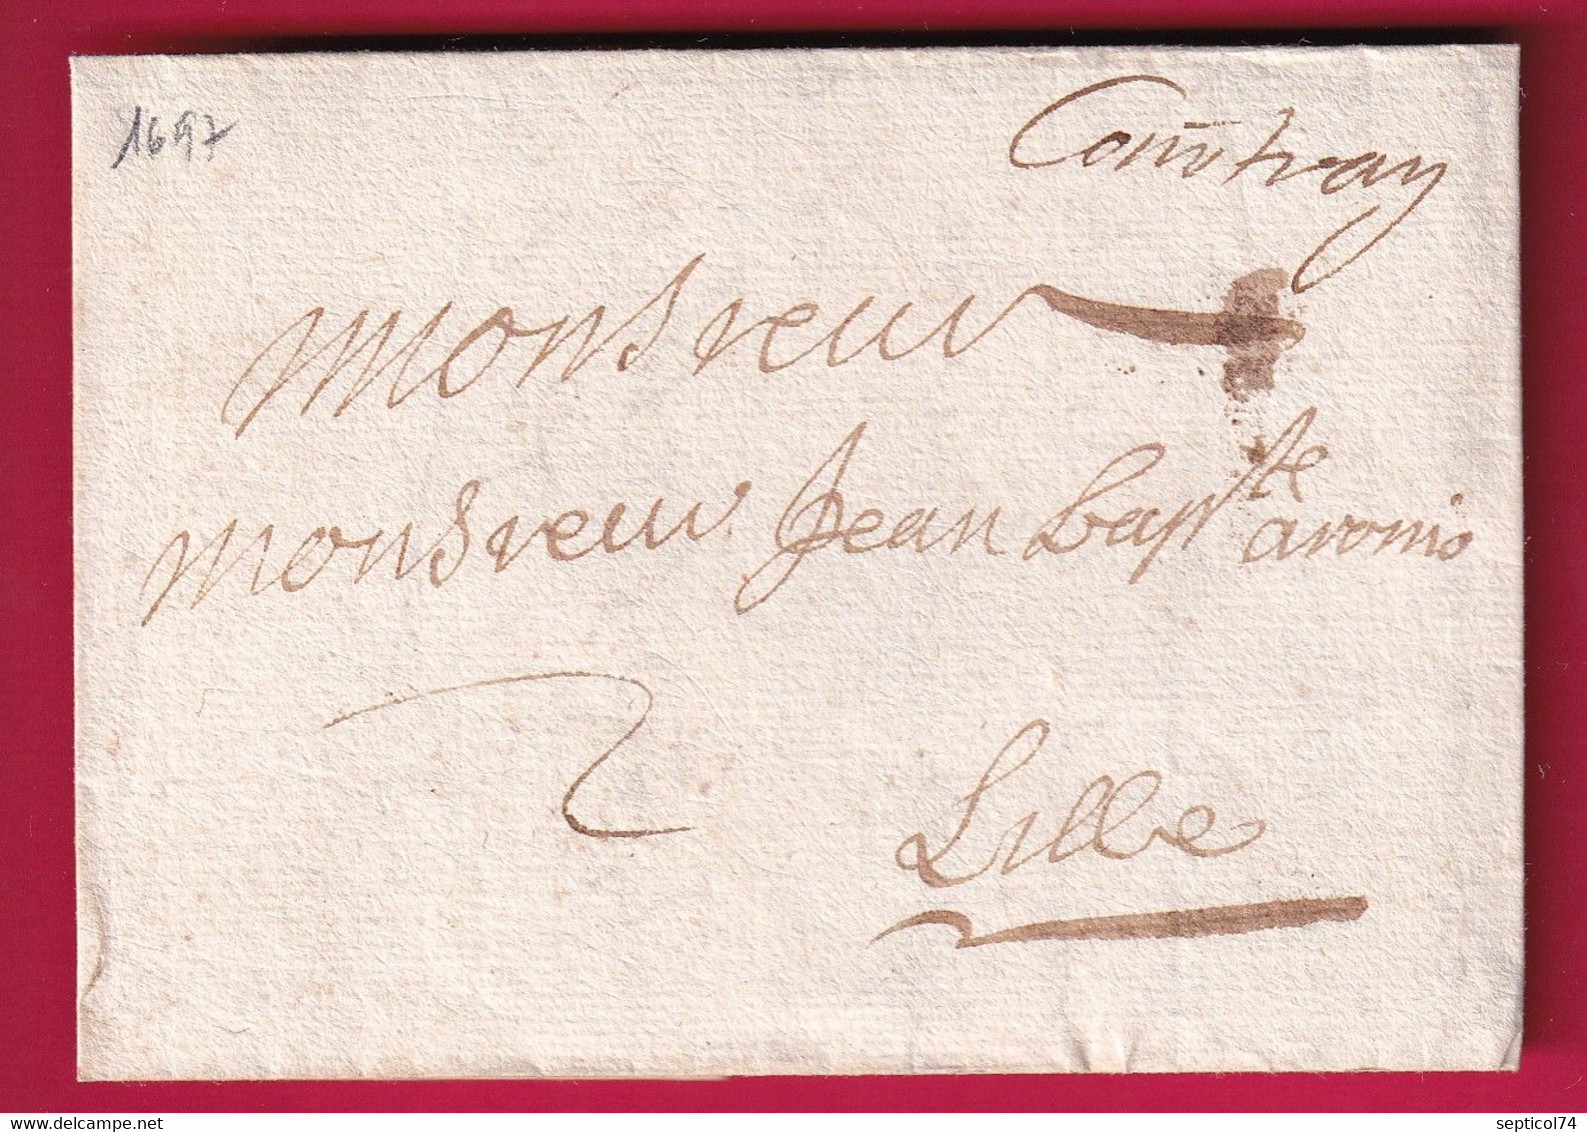 1697
Courtray
Monsieur
Monsieur Jean Bap^te aronio
2
Lille
www.delcampe.net
septicol74